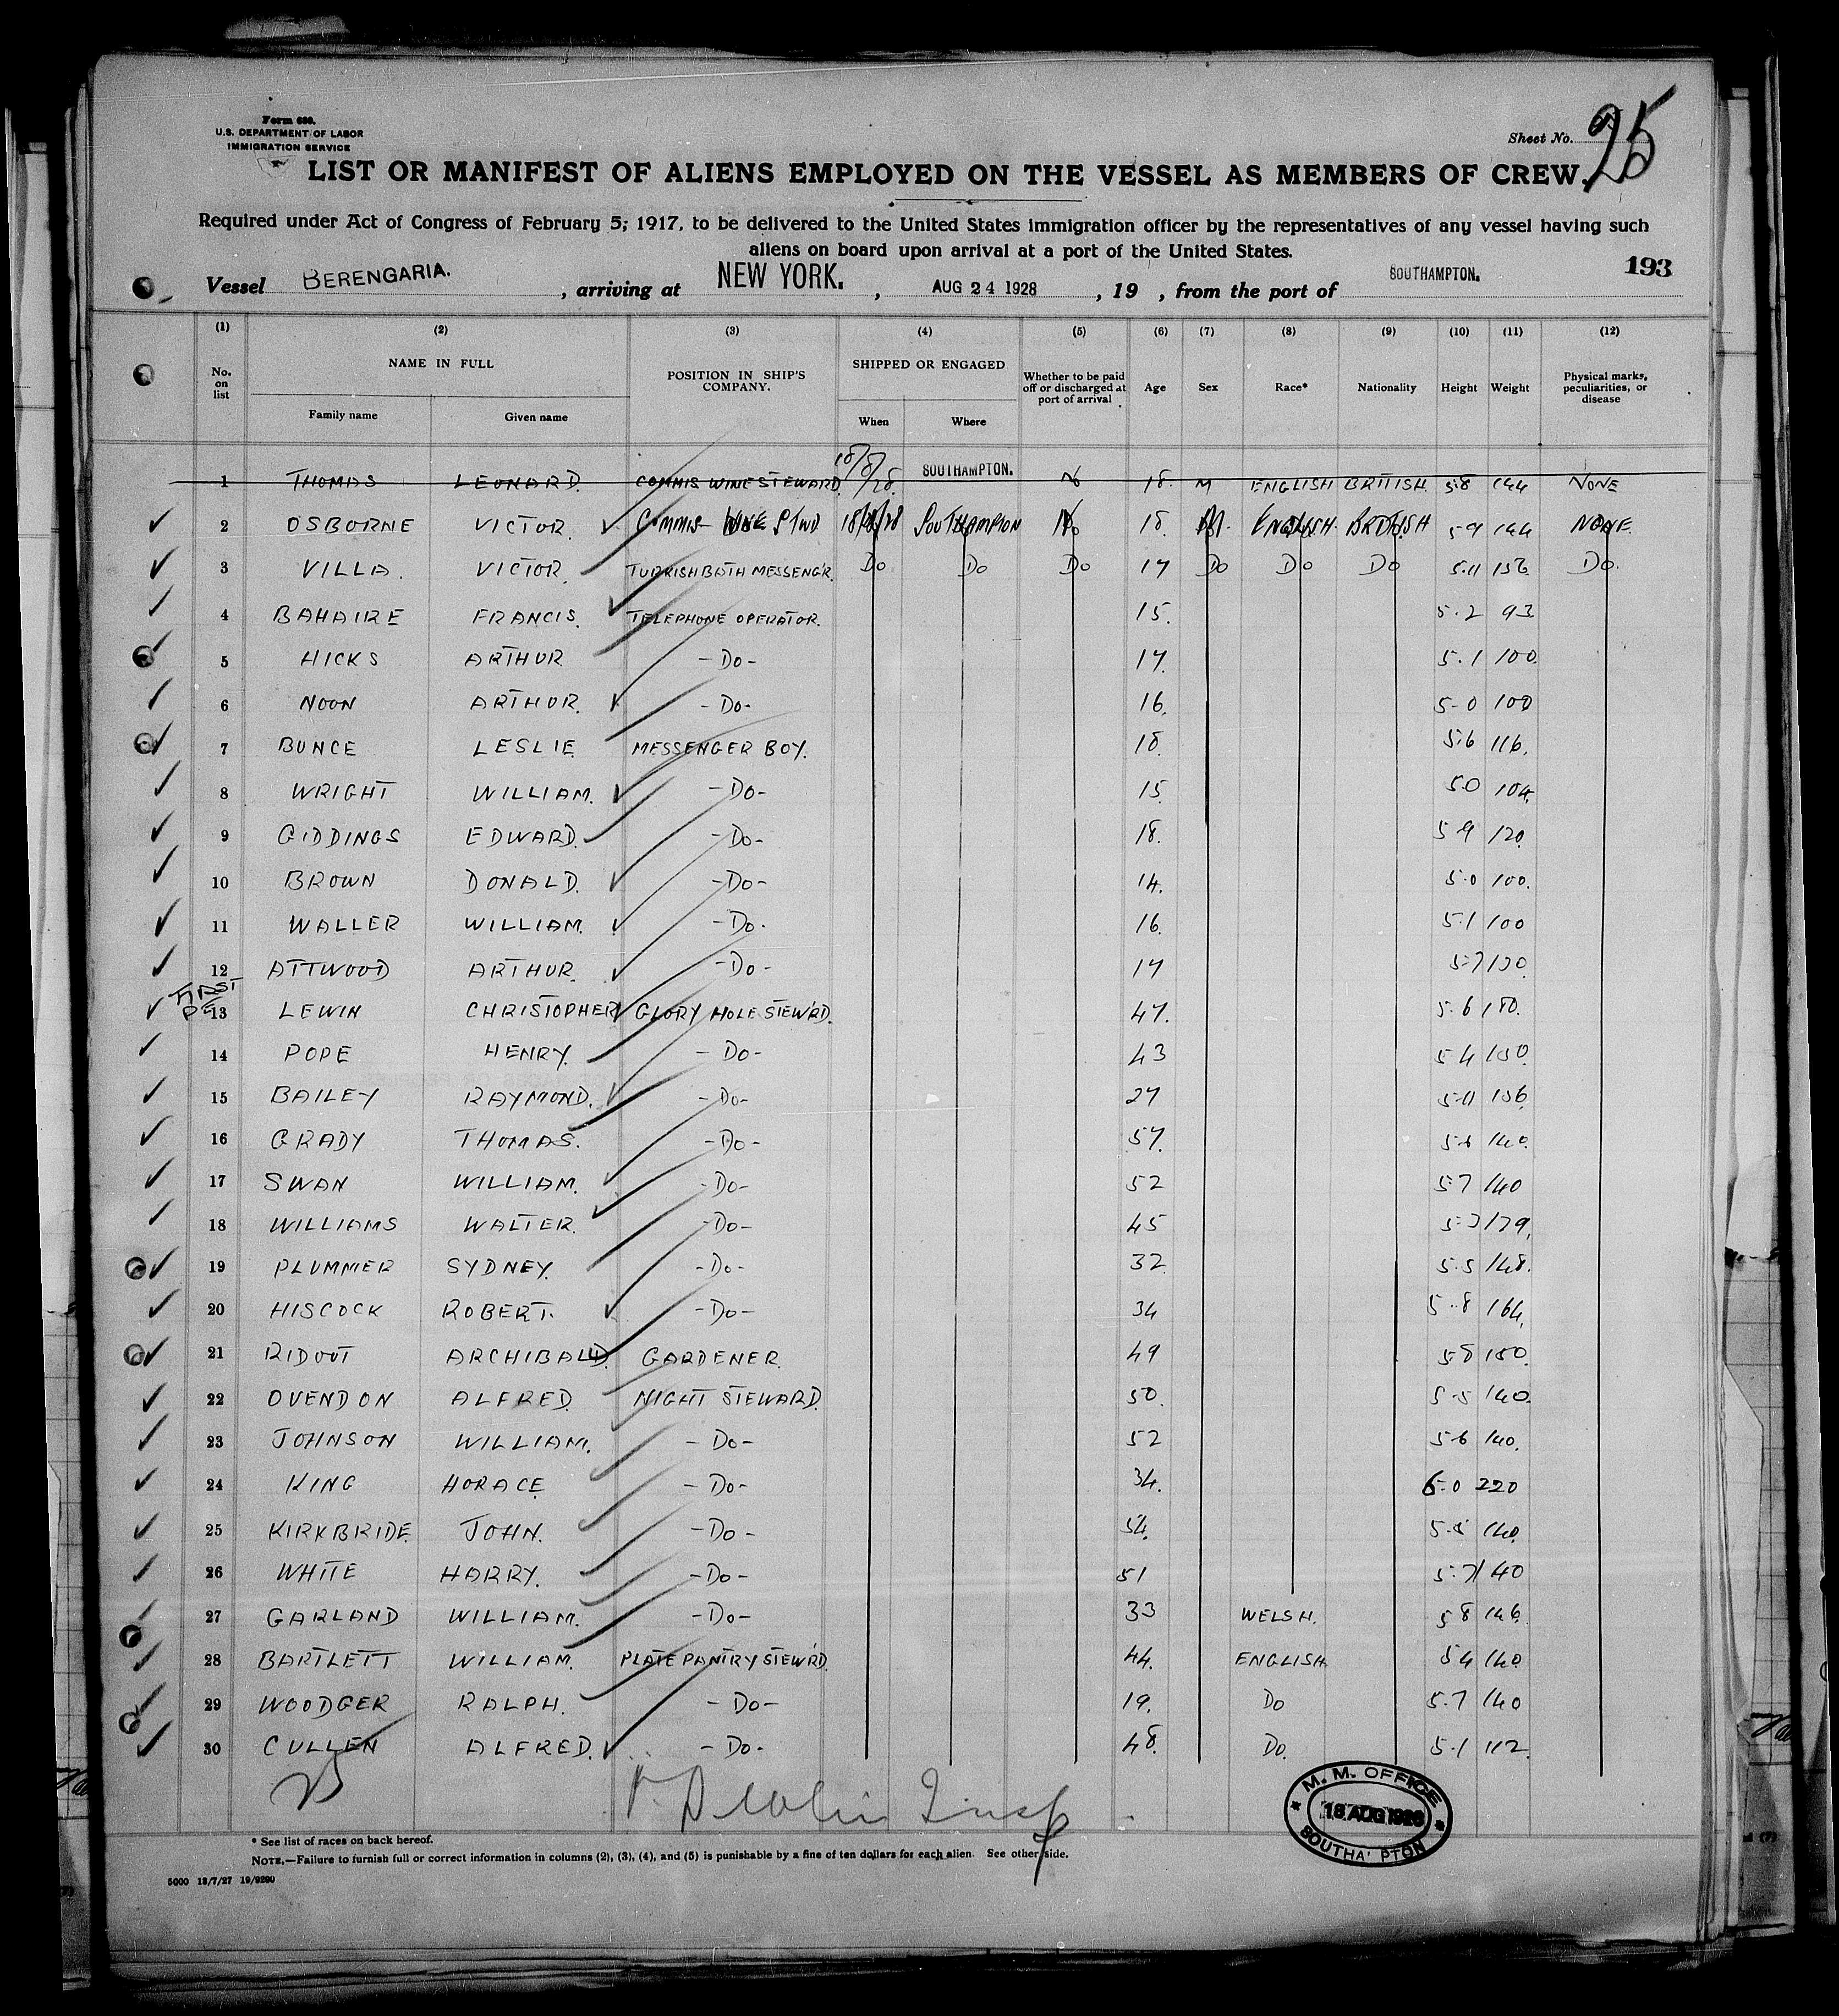 Form 689.
U.S. DEPARTMENT OF LABOR
IMMIGRATION SERVICE
Sheet No. 25
LIST OR MANIFEST OF ALIENS EMPLOYED ON THE VESSEL AS MEMBERS OF CREW.
Required under Act of Congress of February 5, 1917, to be delivered to the United States immigration officer by the representatives of any vessel having such
aliens on board upon arrival at a port of the United States.
193
Vessel BERENGARIA. , arriving at NEW YORK. , AUG 24 1928 , 19 , from the port of SOUTHAMPTON.
(1) (2) (3) (4) (5) (6) (7) (8) (9) (10) (11) (12)
No. on list NAME IN FULL Family name Given name POSITION IN SHIP'S COMPANY. SHIPPED OR ENGAGED When Where Whether to be paid off or discharged at port of arrival Age Sex Race* Nationality Height Weight Physical marks, peculiarities, or disease
1 THOMAS LEONARD. COMMIS WINE STEWARD. 18/8/28. SOUTHAMPTON. No 18. M ENGLISH BRITISH. 5.8 144 NONE
2 OSBORNE VICTOR. COMMIS WINE STWD 18/8/28 SOUTHAMPTON No 18. M. ENGLISH BRITISH 5.9 144 NONE.
3 VILLA. VICTOR. TURKISH BATH MESSENG'R. Do Do Do 17 Do Do Do 5.11 156 Do.
4 BAHAIRE FRANCIS. TELEPHONE OPERATOR. 15. 5.2 93
5 HICKS ARTHUR -Do- 17. 5.1 100.
6 NOON ARTHUR. -Do- 16. 5-0 100
7 BUNCE LESLIE MESSENGER BOY. 18. 5.6 116.
8 WRIGHT WILLIAM. -Do- 15. 5.0 104.
9 GIDDINGS EDWARD. -Do- 18. 5.9 120.
10 BROWN DONALD. -Do- 14. 5.0 100.
11 WALLER WILLIAM. -Do. 16. 5.1 100
12 ATTWOOD ARTHUR. -Do- 17 5.7
FIRST
13 LEWIN CHRISTOPHER GLORY HOLE STEW'RD. 47. 5.6
14 POPE HENRY. -Do- 43 5.4
15 BAILEY RAYMOND. -Do- 27 5.11 156
16 GRADY THOMAS. -Do- 57. 140.
17 SWAN WILLIAM. -Do- 52 5.7 140
18 WILLIAMS WALTER. -Do- 45
19 PLUMMER SYDNEY. -Do- 32 5.5 148.
20 HISCOCK ROBERT. -Do- 34 5.8 164.
21 RIDOUT ARCHIBALD. GARDENER. 49 5.8
22 OVENDON ALFRED. NIGHT STEWARD. 50. 5.5 140.
23 JOHNSON WILLIAM. -Do- 52 5.6 140.
24 KING HORACE -Do- 34. 6.0 220
25 KIRKBRIDE. JOHN. -Do- 54. 140.
26 WHITE HARRY. -Do- 51 5.7 140
27 GARLAND WILLIAM. -Do- 33 WELSH. 5.8 146.
28 BARTLETT WILLIAM. PLATE PANTRY STEW'RD. 44. ENGLISH 5.4 140
29 WOODGER RALPH. -Do- 19. Do 5.7 140
30 CULLEN ALFRED. -Do- 48. Do. 5.1 112.
M. M. OFFICE
18 AUG 1928
SOUTHA'PTON
* See list of races on back hereof.
NOTE.—Failure to furnish full or correct information in columns (2), (3), (4), and (5) is punishable by a fine of ten dollars for each alien. See other side.
5000 13/7/27 19/9290